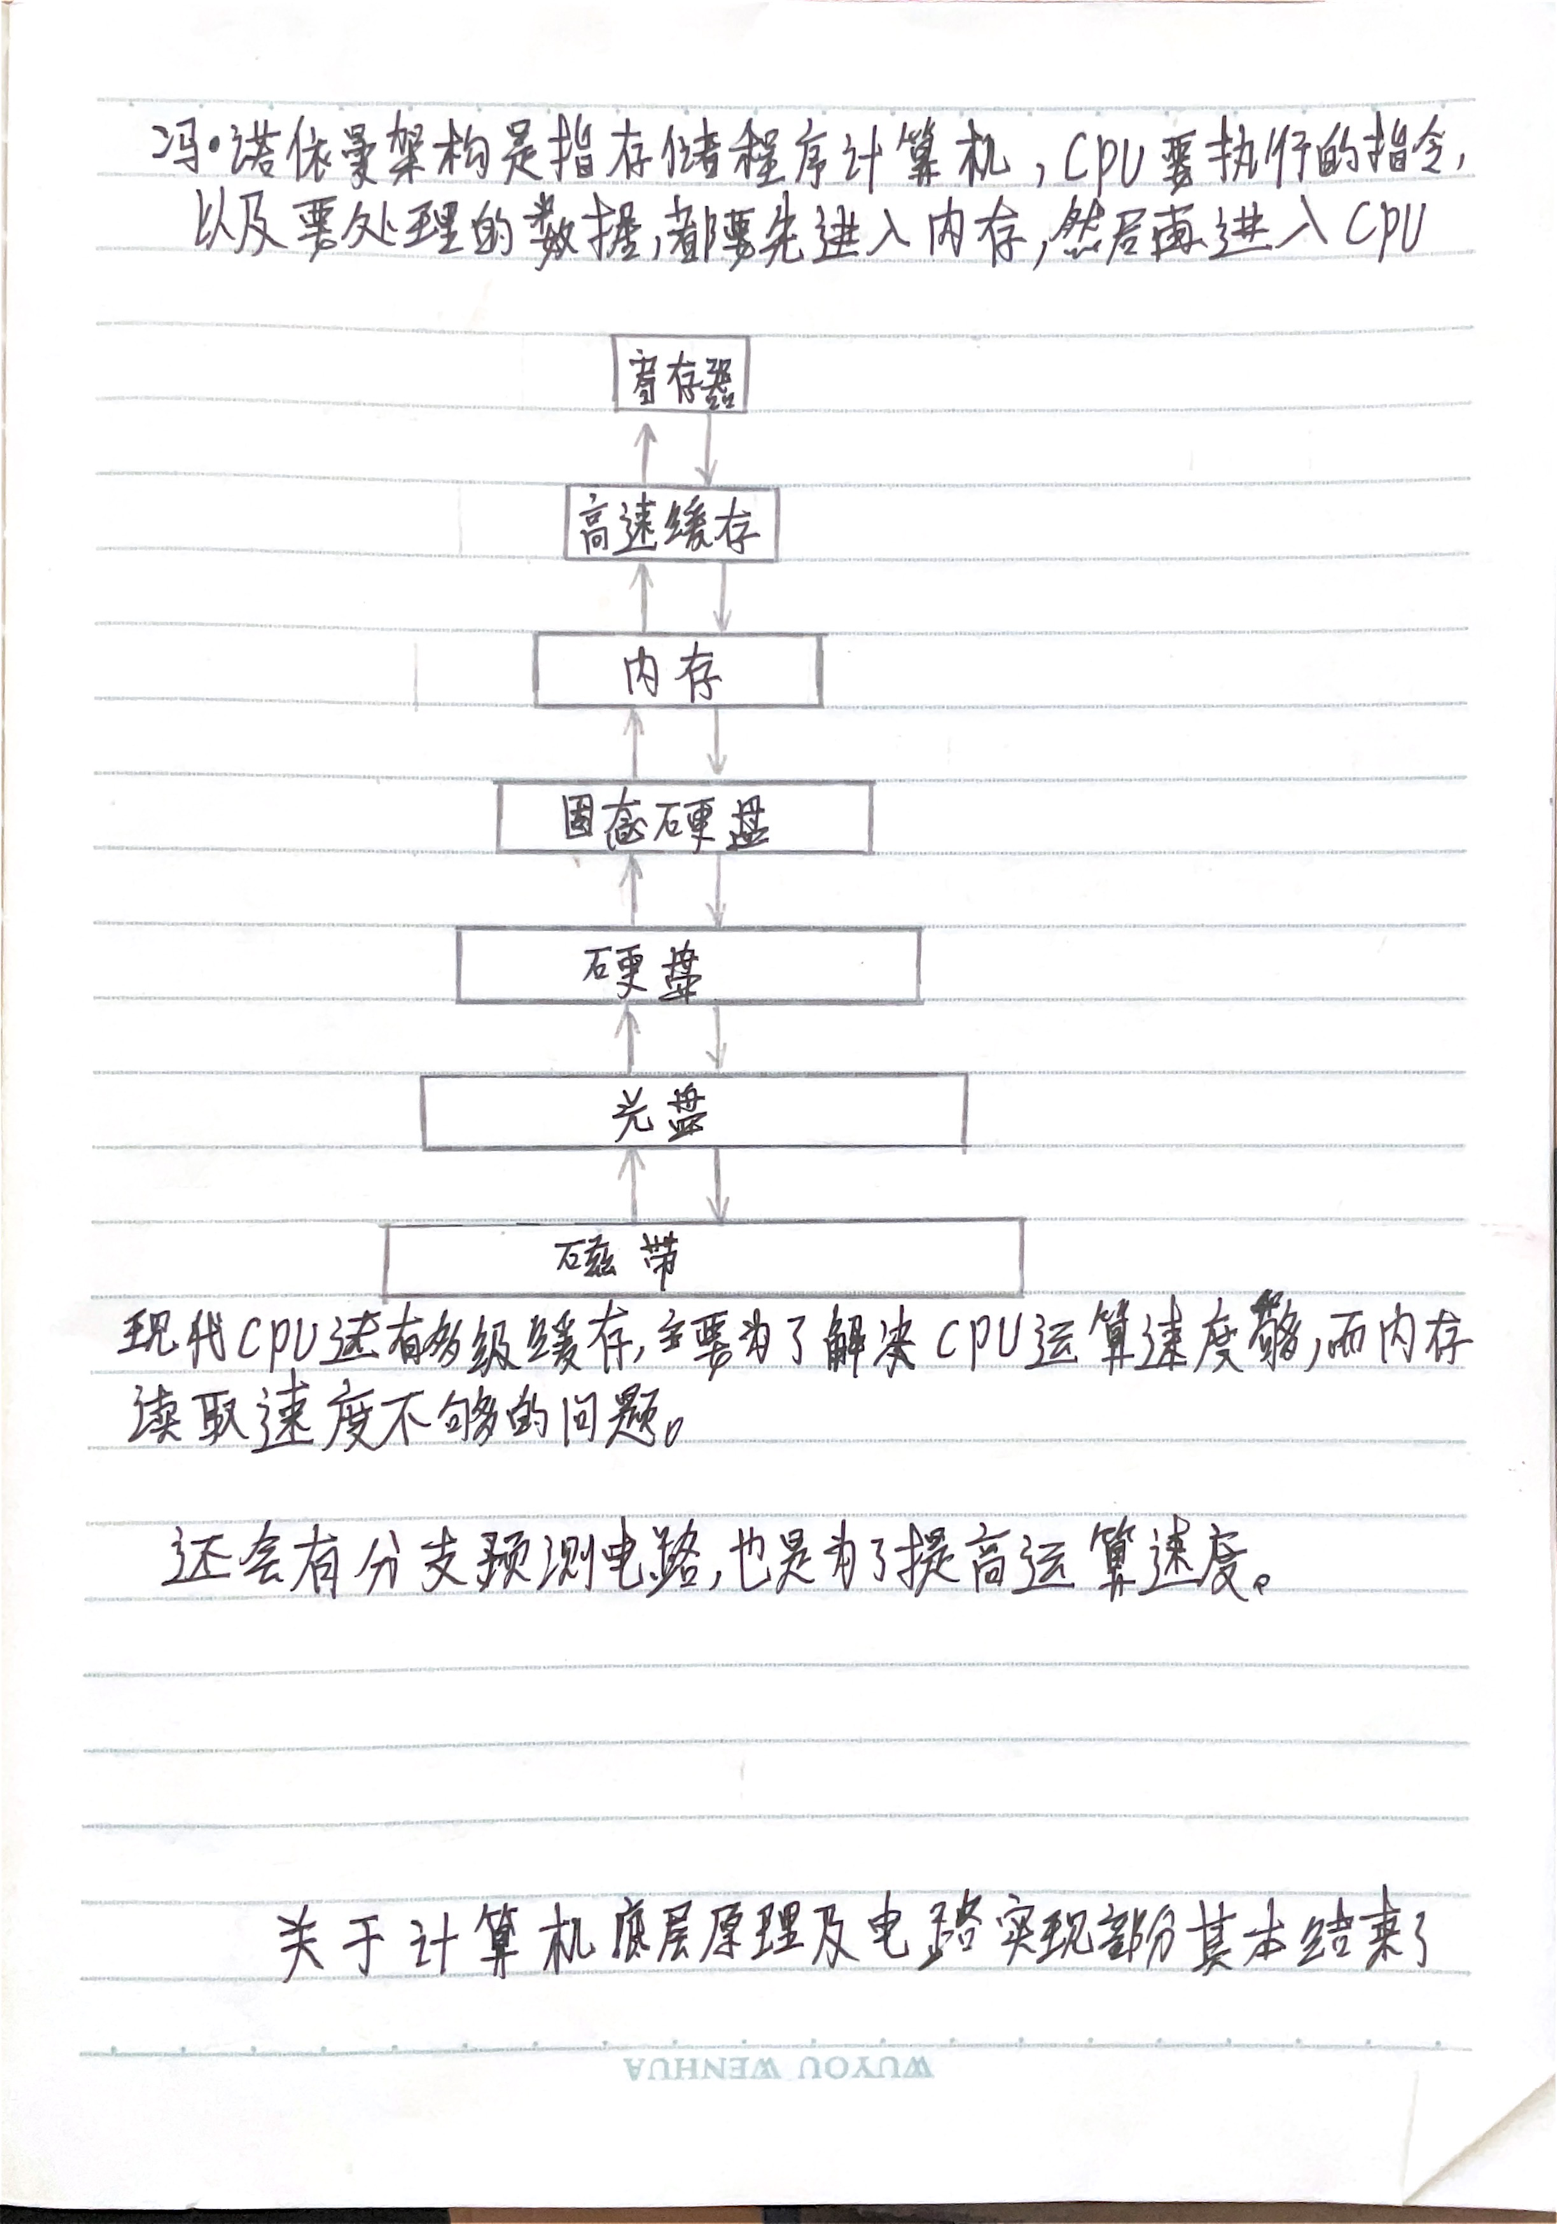 冯·诺依曼架构是指存储程序计算机，CPU要执行的指令，
以及要处理的数据，都要先进入内存，然后再进入CPU
寄存器
高速缓存
内存
固态硬盘
硬盘
光盘
磁带
现代CPU还有多级缓存，主要为了解决CPU运算速度够，而内存
读取速度不够的问题。
还会有分支预测电路，也是为了提高运算速度。
关于计算机底层原理及电路实现部分基本结束了
WUYOU WENHUA